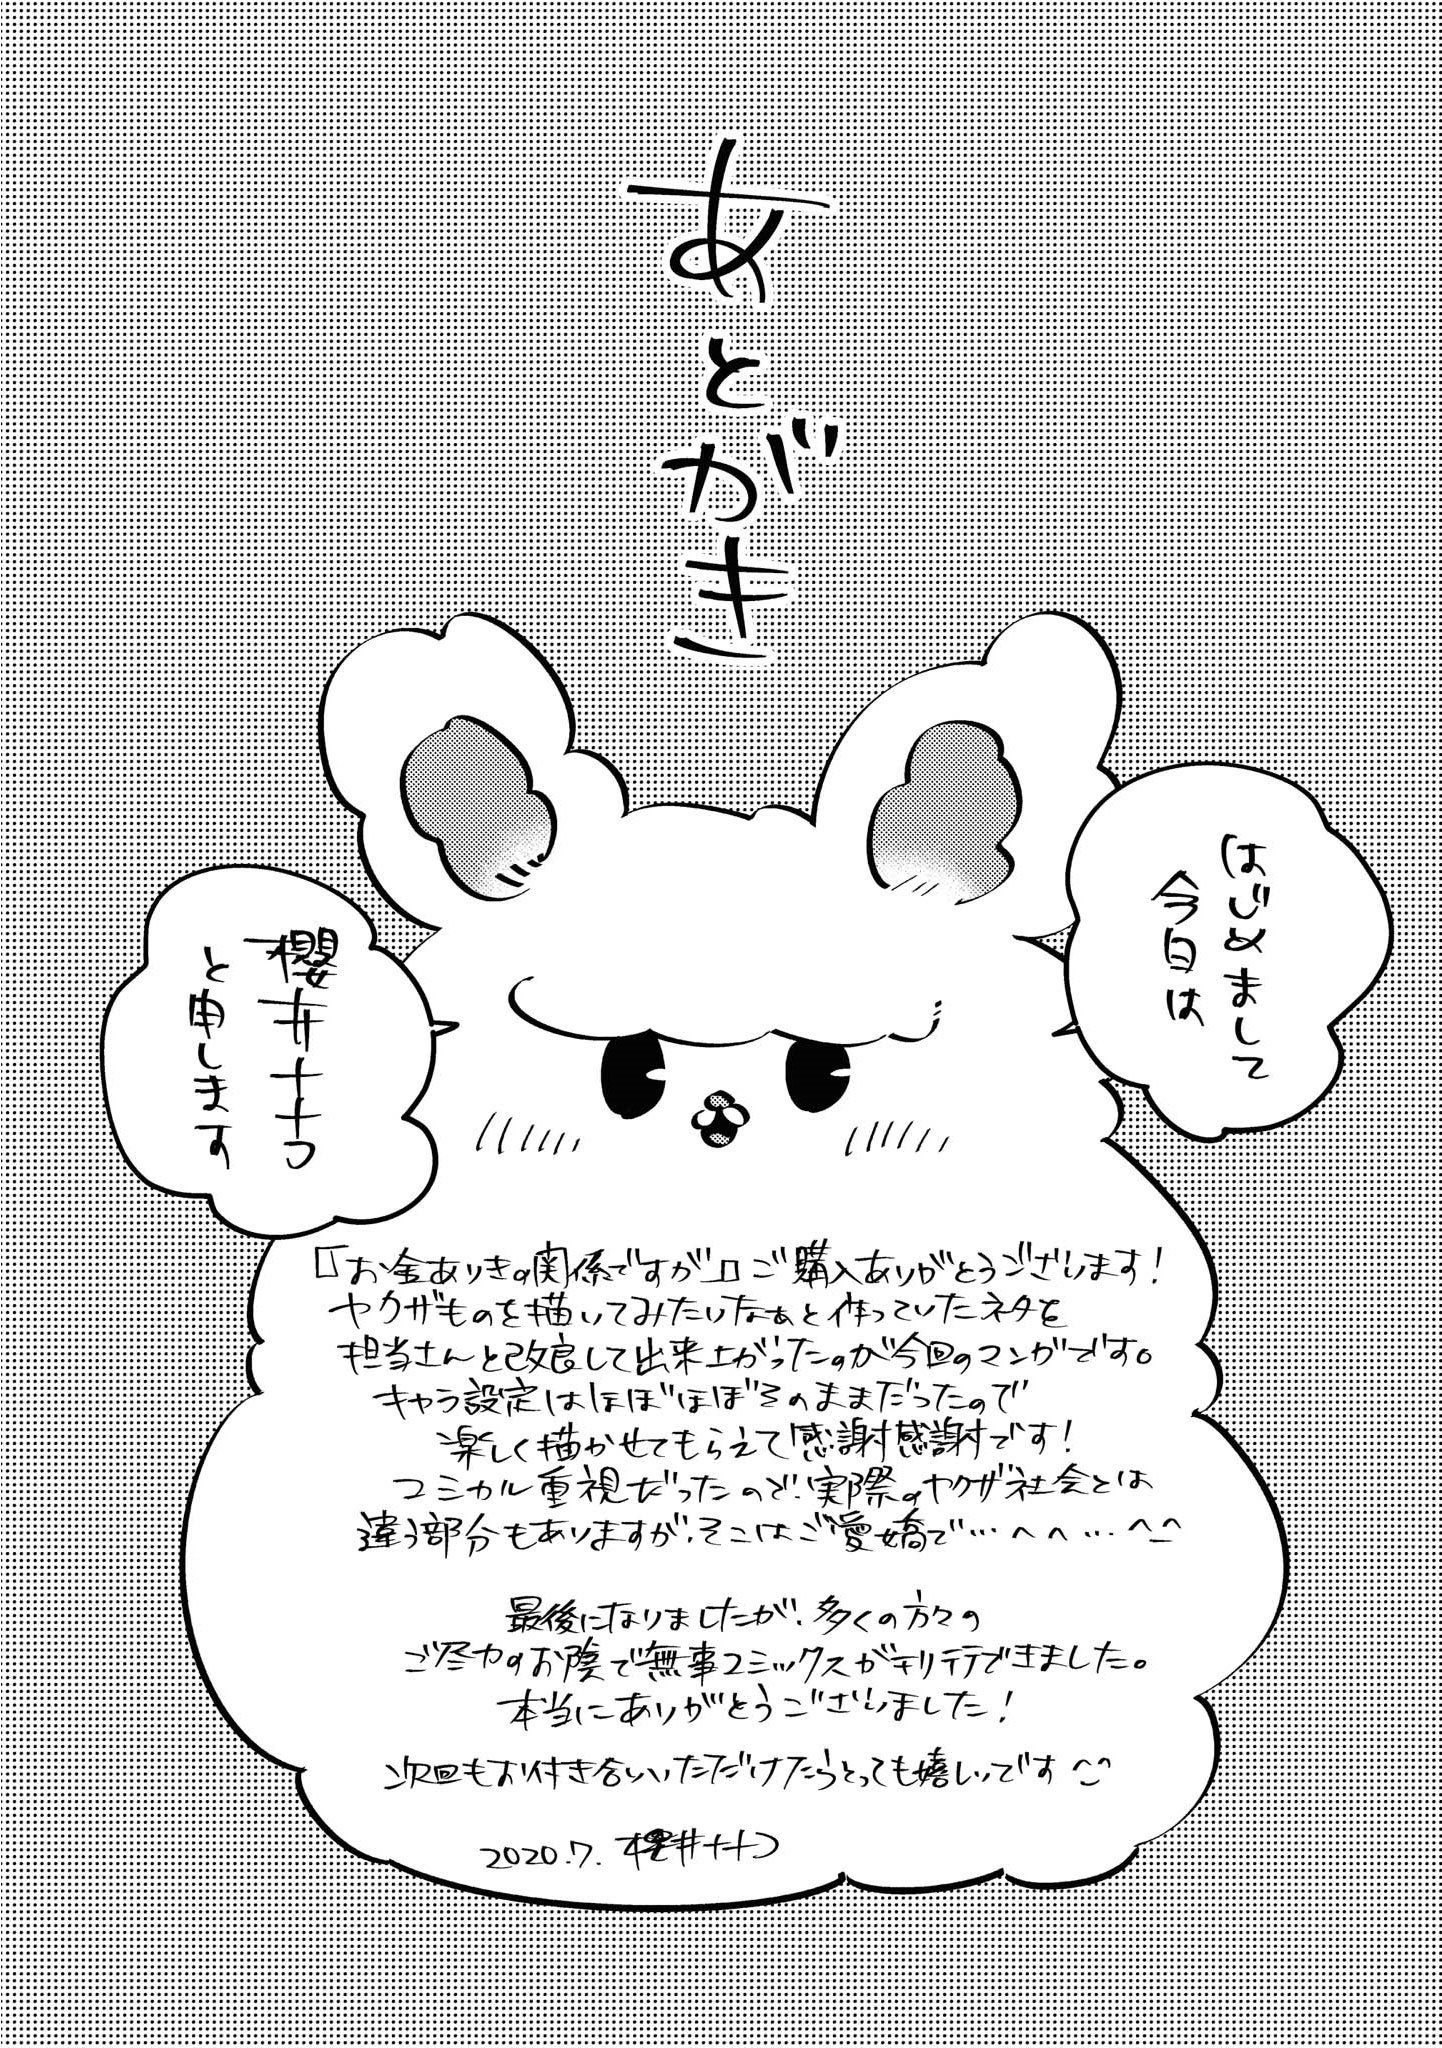 あとがき
はじめまして
今日は
櫻井ナナコ
と申します
『お金ありきの関係ですが』ご購入ありがとうございます!
ヤクザものを描いてみたいなぁと作っていたネタを
担当さんと改良して出来上がったのが今回のマンガです。
キャラ設定はほぼほぼそのままだったので
楽しく描かせてもらえて感謝感謝です!
コミカル重視だったので、実際のヤクザ社会とは
違う部分もありますが、そこはご愛嬌で…へへ…^^
最後になりましたが、多くの方々の
ご尽力のお陰で無事コミックスがキリテテできました。
本当にありがとうございました!
次回もお付き合いいただけたらとっても嬉しいです^^
2020.7. 櫻井ナナコ